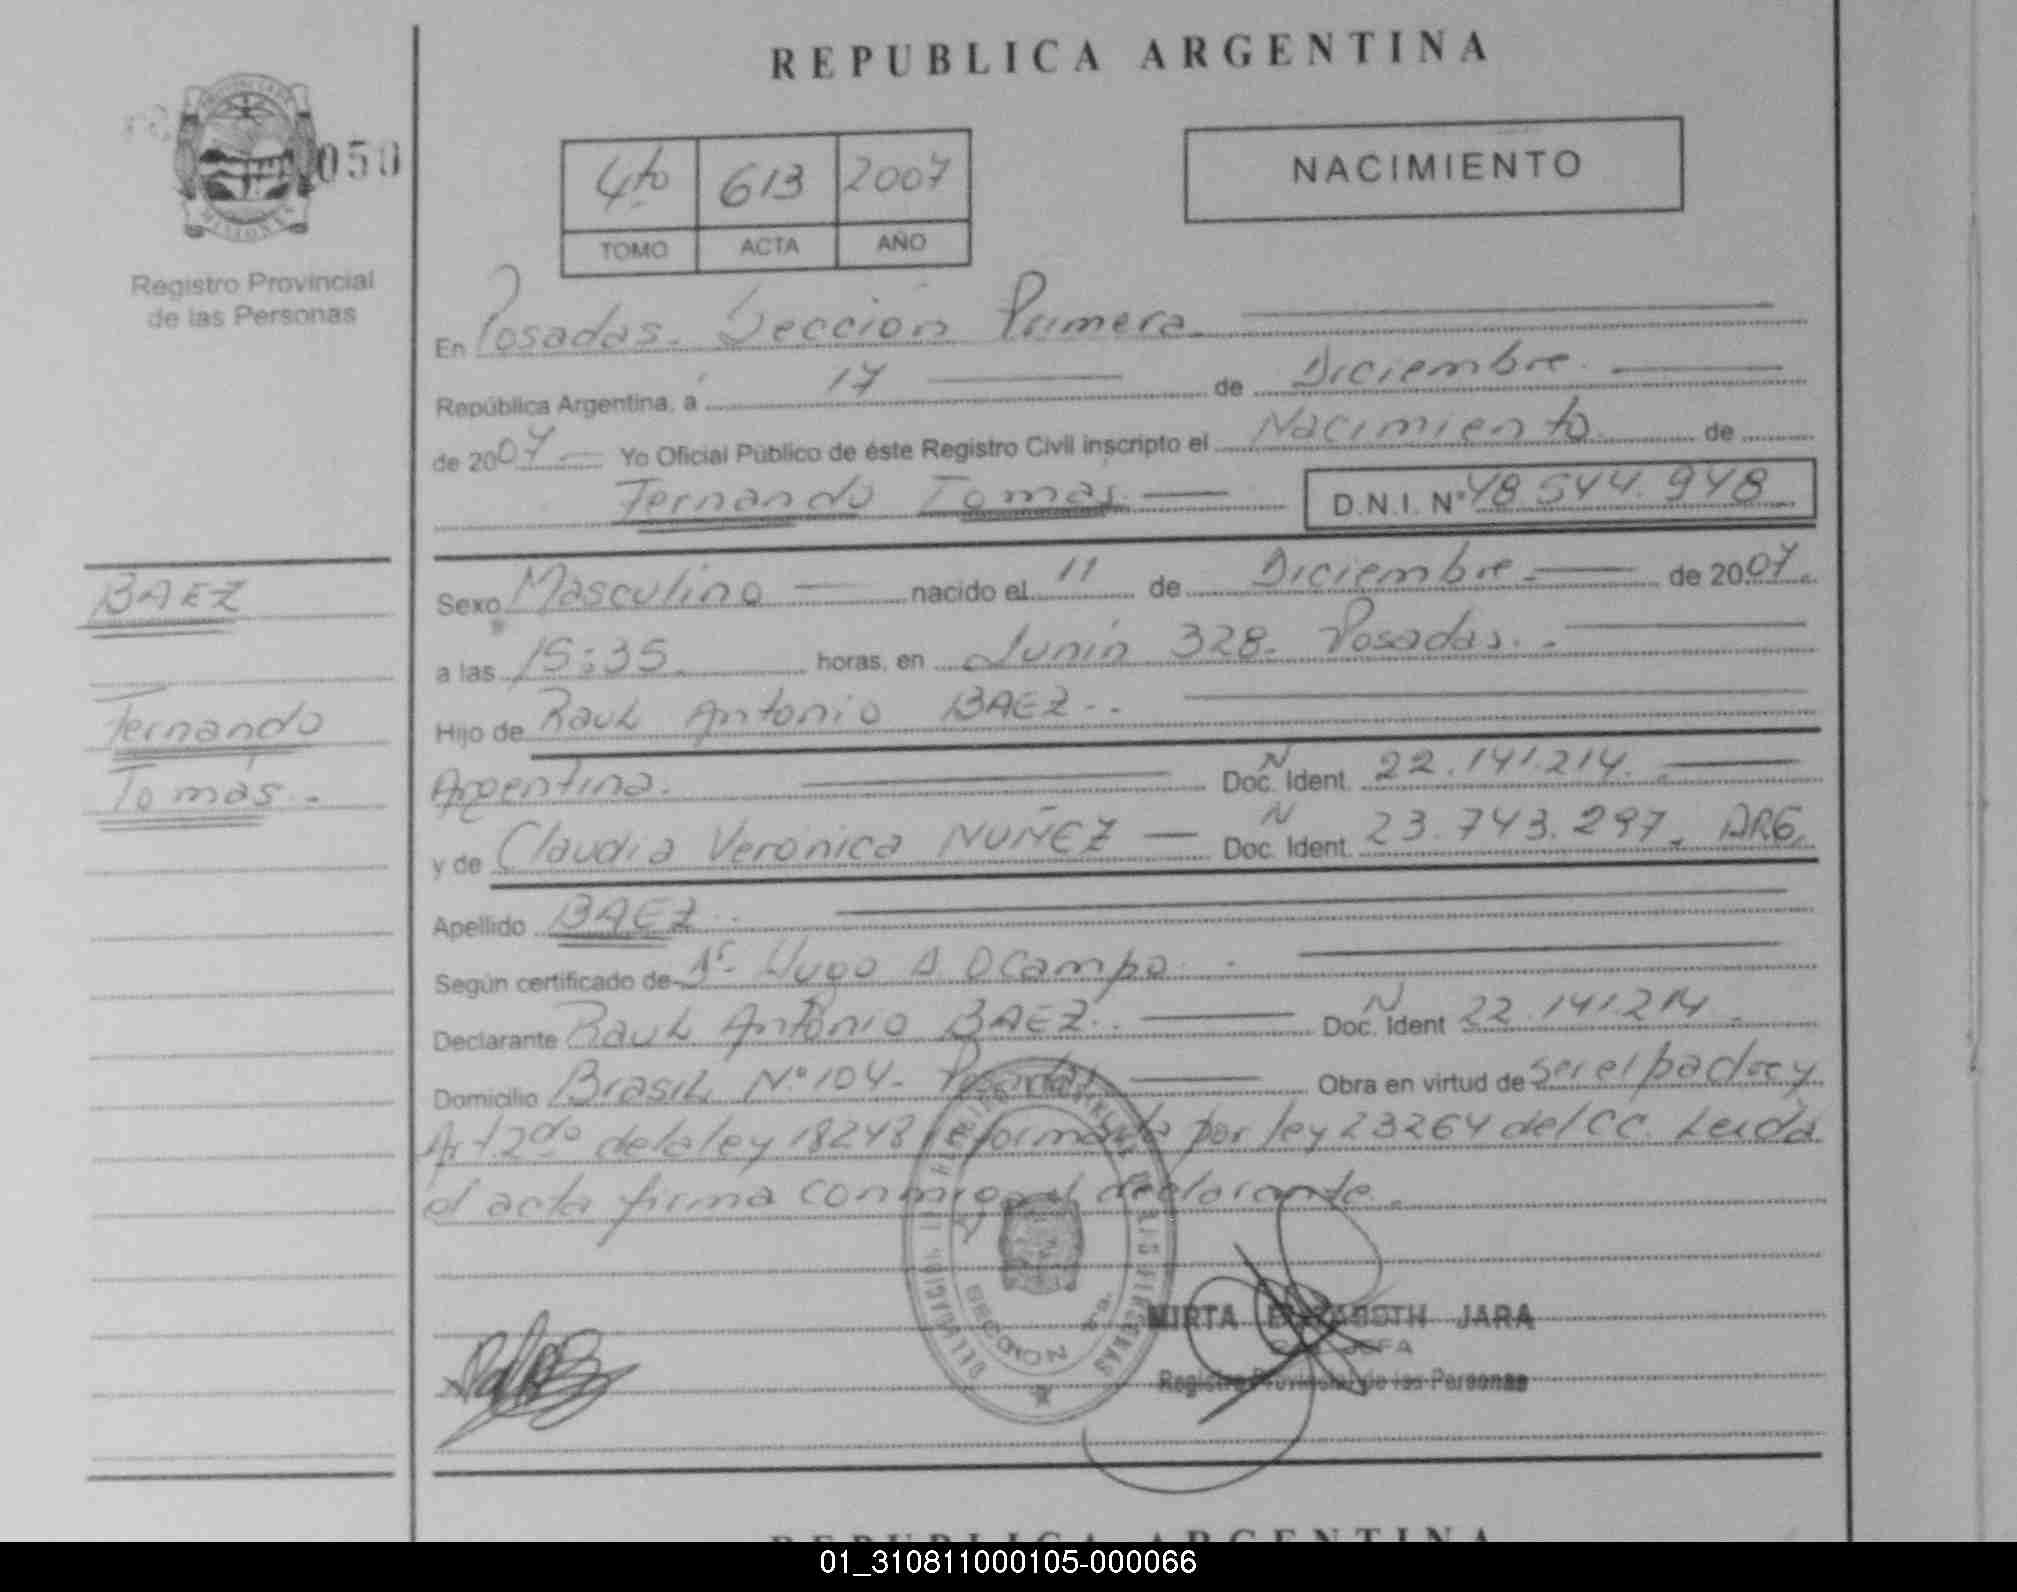 REPUBLICA ARGENTINA
050
4to 613 2007
TOMO ACTA AÑO
NACIMIENTO
MISIONES
Registro Provincial
de las Personas
En Posadas. Sección Primera
República Argentina, a 17 de Diciembre.
de 2007 Yo Oficial Público de éste Registro Civil inscripto el Nacimiento de
Fernando Tomás. D.N.I. Nº 48.544.948
BAEZ
Sexo Masculino nacido el 11 de Diciembre. de 2007.
a las 15:35. horas, en Junín 328. Posadas.
Fernando
Hijo de Raul Antonio BAEZ..
Tomás.
Argentina. Doc. Ident. N 22.141.214.
y de Claudia Verónica NUÑEZ Doc. Ident. N 23.743.297. ARG.
Apellido BAEZ..
Según certificado de Hugo A Ocampo.
Declarante Raul Antonio BAEZ.. Doc. Ident N 22.141.214.
Domicilio Brasil Nº 104. Posadas Obra en virtud de ser el padre y
Art. 2do de la ley 18248 reformada por ley 23264 del CC. Leída
el acta firma conmigo el declarante.
SECCION 1a.
MIRTA ELIZABETH JARA
Registro Provincial de las Personas
REPUBLICA ARGENTINA
01_310811000105-000066